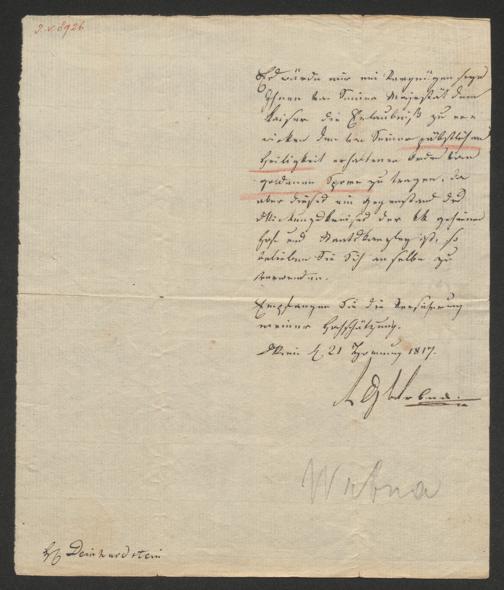 I. N. 8926
Es würde mir ein Vergnügen seyn
Ihnen von Seiner Majestät dem
Kaiser die Erlaubniß zu er=
wirken den von Seiner päbstlichen
Heiligkeit erhaltenen Orden vom
goldenen Sporne zu tragen, da
aber dieses ein Gegenstand des
Wirkungskreises der kk geheimen
Hof und Staatskanzley ist, so
belieben Sie Sich an selbe zu
verwenden.
Empfangen Sie die Versicherung
meiner Hochschätzung.
Wien d. 21 1817.
Wrbna
Wrbna
Deinhardstein